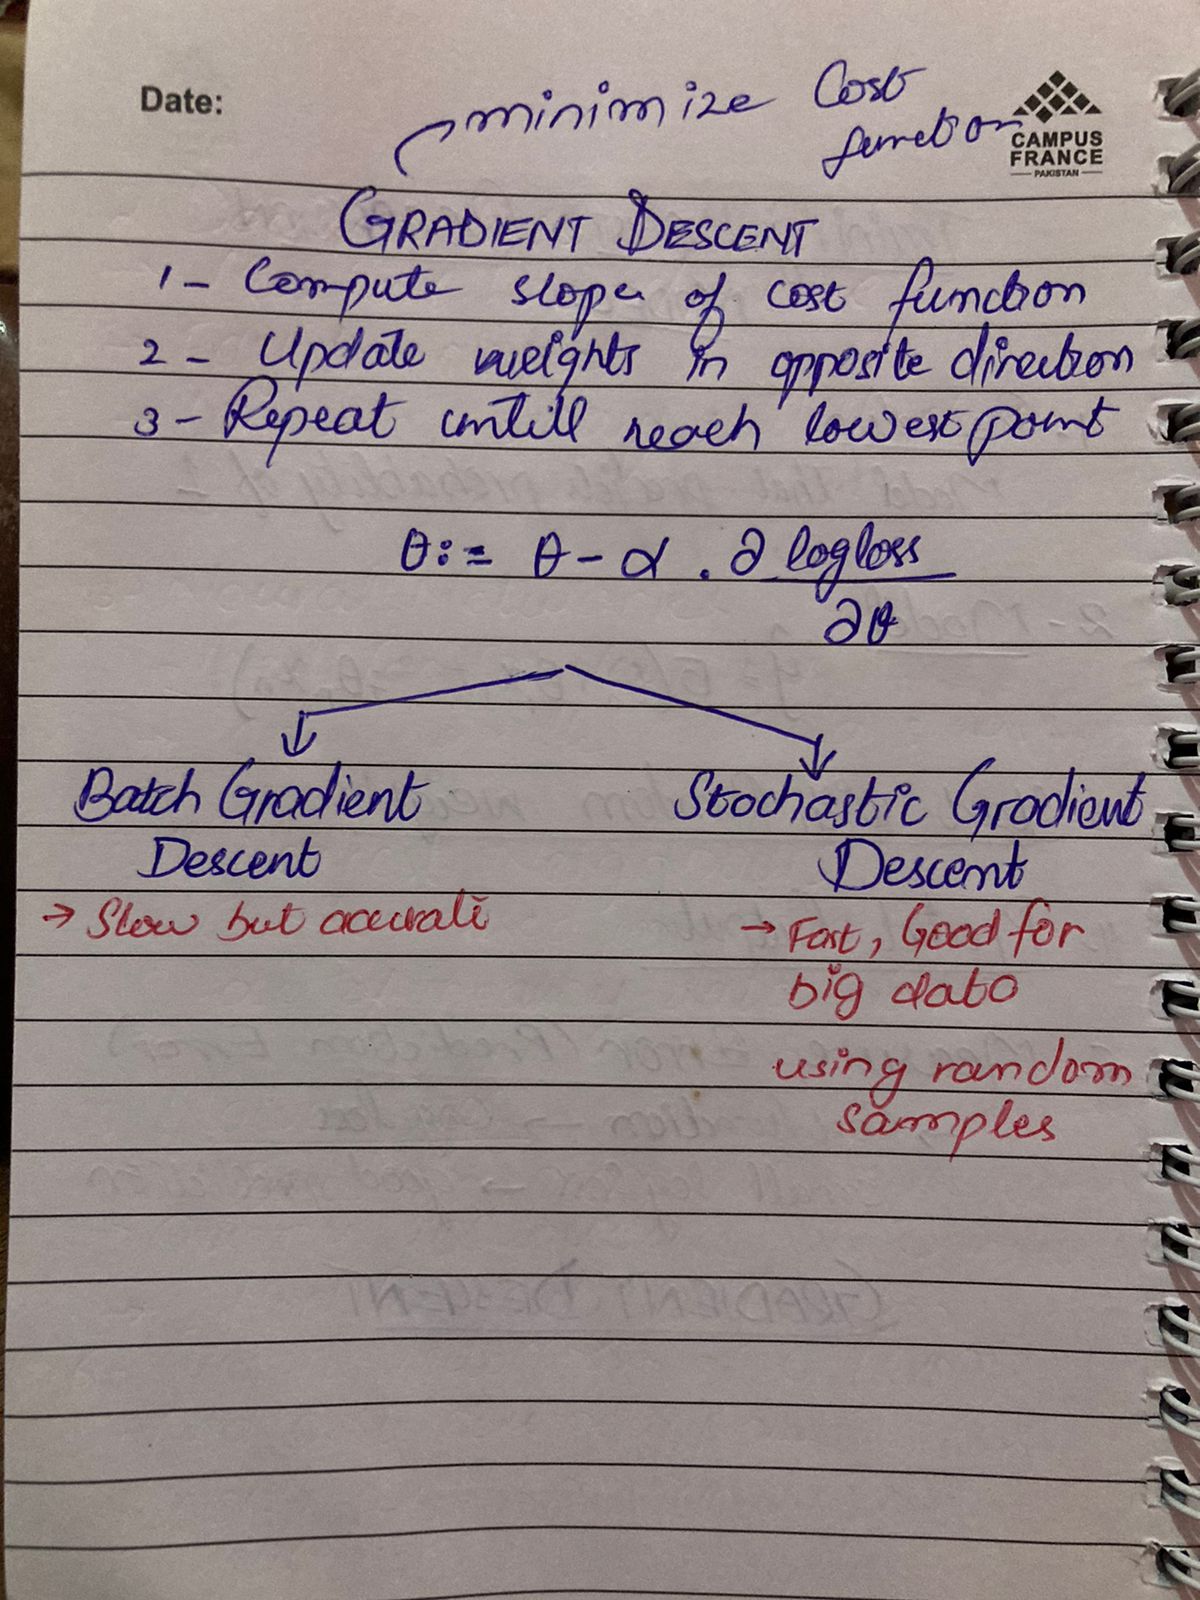 Date:
minimize Cost
function
CAMPUS
FRANCE
PAKISTAN
GRADIENT DESCENT
1- Compute slope of cost function
2- Update weights in opposite direction
3- Repeat untill reach lowest point
θ:= θ - α . ∂ logloss
∂θ
Batch Gradient
Descent
→ Slow but accurate
Stochastic Gradient
Descent
→ Fast, Good for
big data
using random
samples